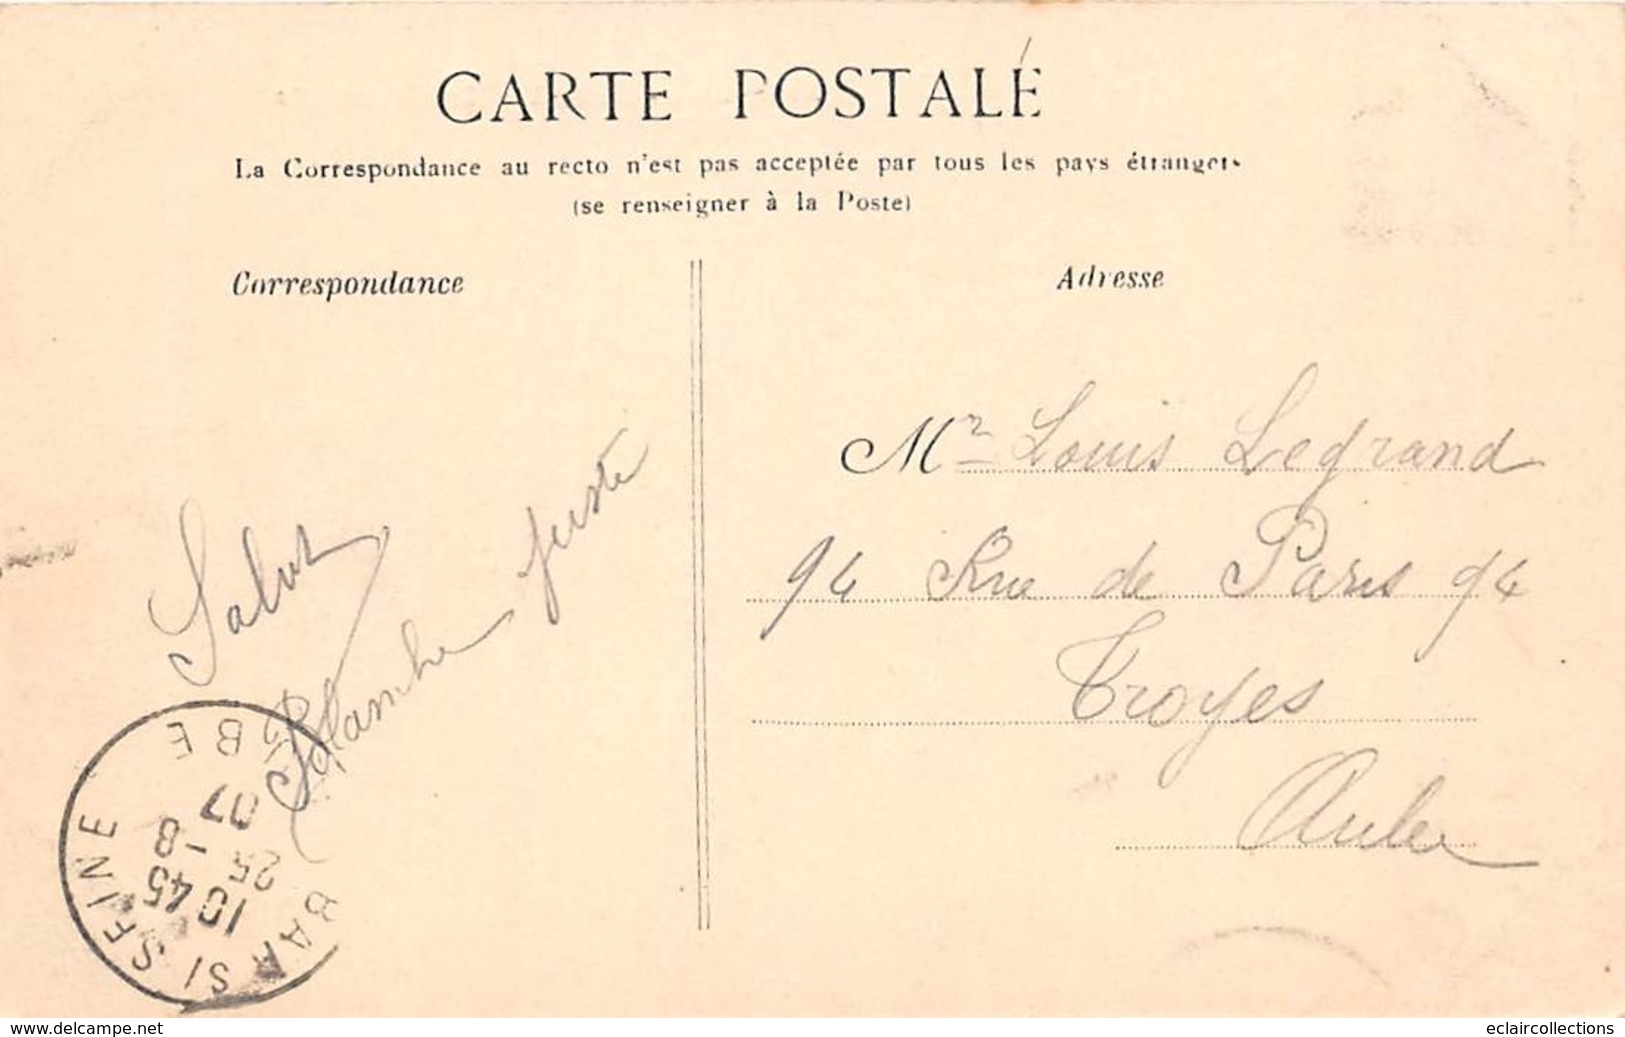 CARTE POSTALE
La Correspondance au recto n'est pas acceptée par tous les pays étrangers
(se renseigner à la Poste)
Correspondance
Adresse
Salut
Blanche Juste
Mr Louis Legrand
94 Rue de Paris 94
Troyes
Aube
BAR S/ SEINE
10 45
25 -8
07
www.delcampe.net
eclaircollections